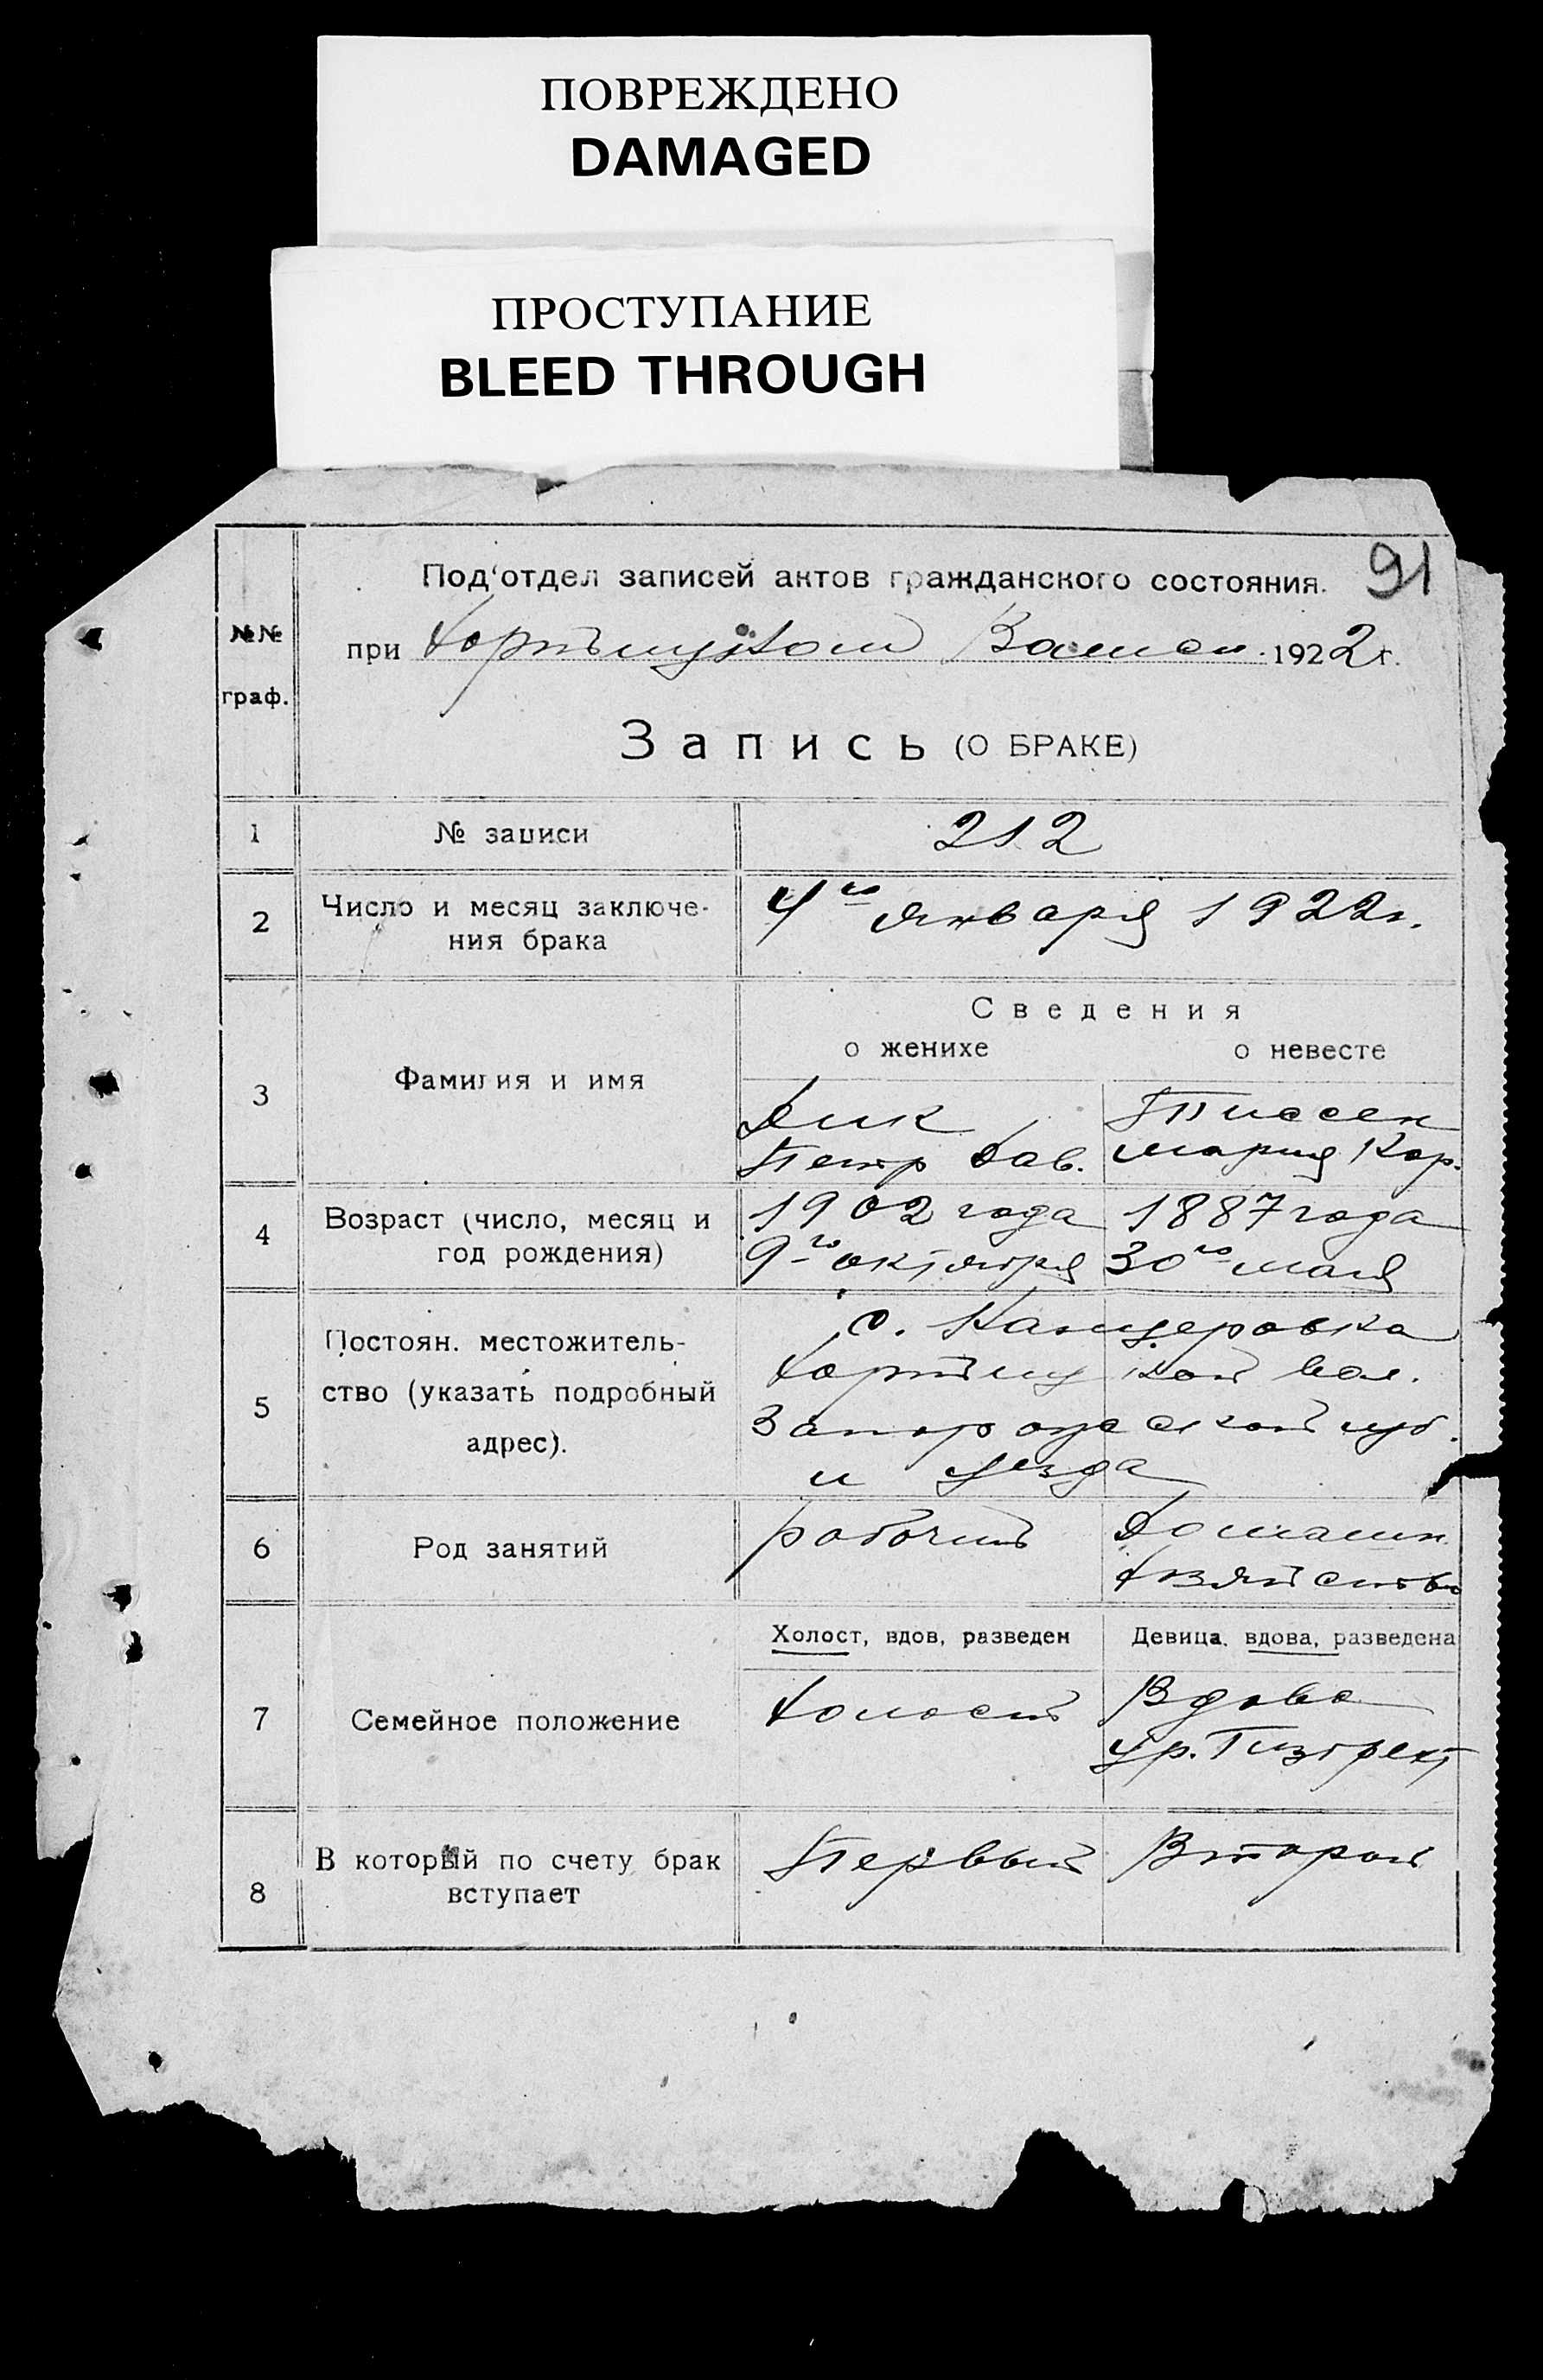 ПОВРЕЖДЕНО
DAMAGED
ПРОСТУПАНИЕ
BLEED THROUGH
91
Под‘отдел записей актов гражданского состояния.
№№
граф.
при 1922 г.
Запись (О БРАКЕ)
1 № записи 212
2 Число и месяц заключе-
ния брака
4го января 1922г.
3 Фамилия и имя
Сведения
о женихе о невесте
Дик Тиссен
Петр Дав. Мария Кор.
4 Возраст (число, месяц и
год рождения)
1902 года 1887 года
9-го октября 30го мая
5 Постоян. местожитель-
ство (указать подробный
адрес).
с. Канцеровка
Хортицкой вол.
Запорожской губ.
и уезда
6 Род занятий
рабочий Домашн.
хозяйство
7 Семейное положение
Холост, вдов, разведен Девица, вдова, разведена
Холост Вдова
ур. Гизбрехт
8 В который по счету брак
вступает
Первый Второй